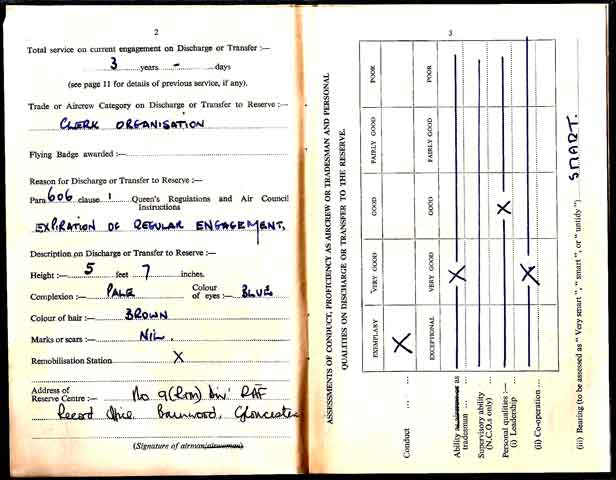 2
Total service on current engagement on Discharge or Transfer :—
3 years - days
(see page 11 for details of previous service, if any).
Trade or Aircrew Category on Discharge or Transfer to Reserve :—
CLERK ORGANISATION
Flying Badge awarded :—
Reason for Discharge or Transfer to Reserve :—
Para 606 clause 1 Queen's Regulations and Air Council
Instructions
EXPIRATION OF REGULAR ENGAGEMENT.
Description on Discharge or Transfer to Reserve :—
Height :— 5 feet 7 inches.
Complexion :— PALE Colour of eyes :— BLUE
Colour of hair :— BROWN
Marks or scars :— NIL.
Remobilisation Station X
Address of
Reserve Centre :— No 9(Rm) Div' RAF
Record Office Barnwood, Gloucester
(Signature of airman/airwoman)
3
ASSESSMENTS OF CONDUCT, PROFICIENCY AS AIRCREW OR TRADESMAN AND PERSONAL
QUALITIES ON DISCHARGE OR TRANSFER TO THE RESERVE.
EXEMPLARY VERY GOOD GOOD FAIRLY GOOD POOR
Conduct ... ... X
EXCEPTIONAL VERY GOOD GOOD FAIRLY GOOD POOR
Ability as aircrew or as
tradesman ... X
Supervisory ability
(N.C.O.s only) ...
Personal qualities :—
(i) Leadership ... X
(ii) Co-operation ... X
(iii) Bearing (to be assessed as "Very smart", "smart", or "untidy") SMART.